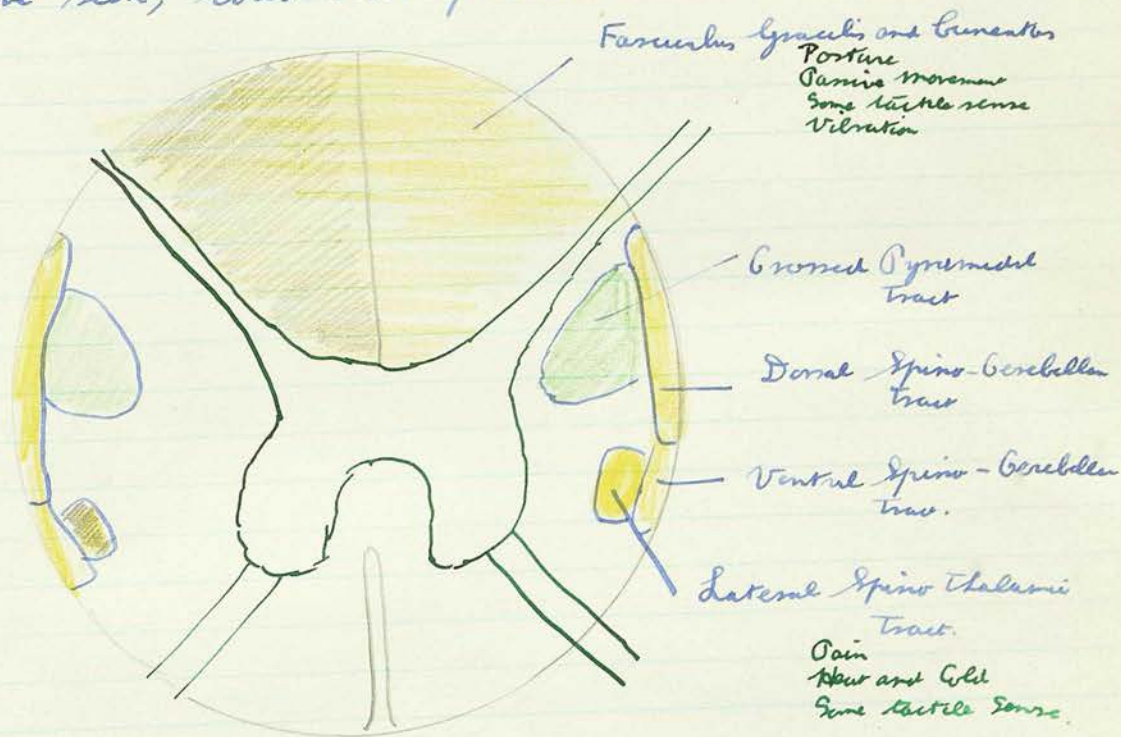 Fasciculus Gracilis and Cuneatus
Posture
Passive movement
Some tactile sense
Vibration
Crossed Pyramidal
Tract
Dorsal Spino-Cerebellar
Tract
Ventral Spino-Cerebellar
Tract.
Lateral Spino Thalamic
Tract.
Pain
Heat and Cold
Some tactile Sense.